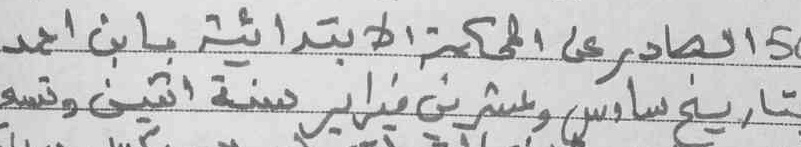 50 الصادر على المحكمة الابتدائية بابن احمد
بتاريخ سادس وعشرين فبراير سنة اثنين وتسع